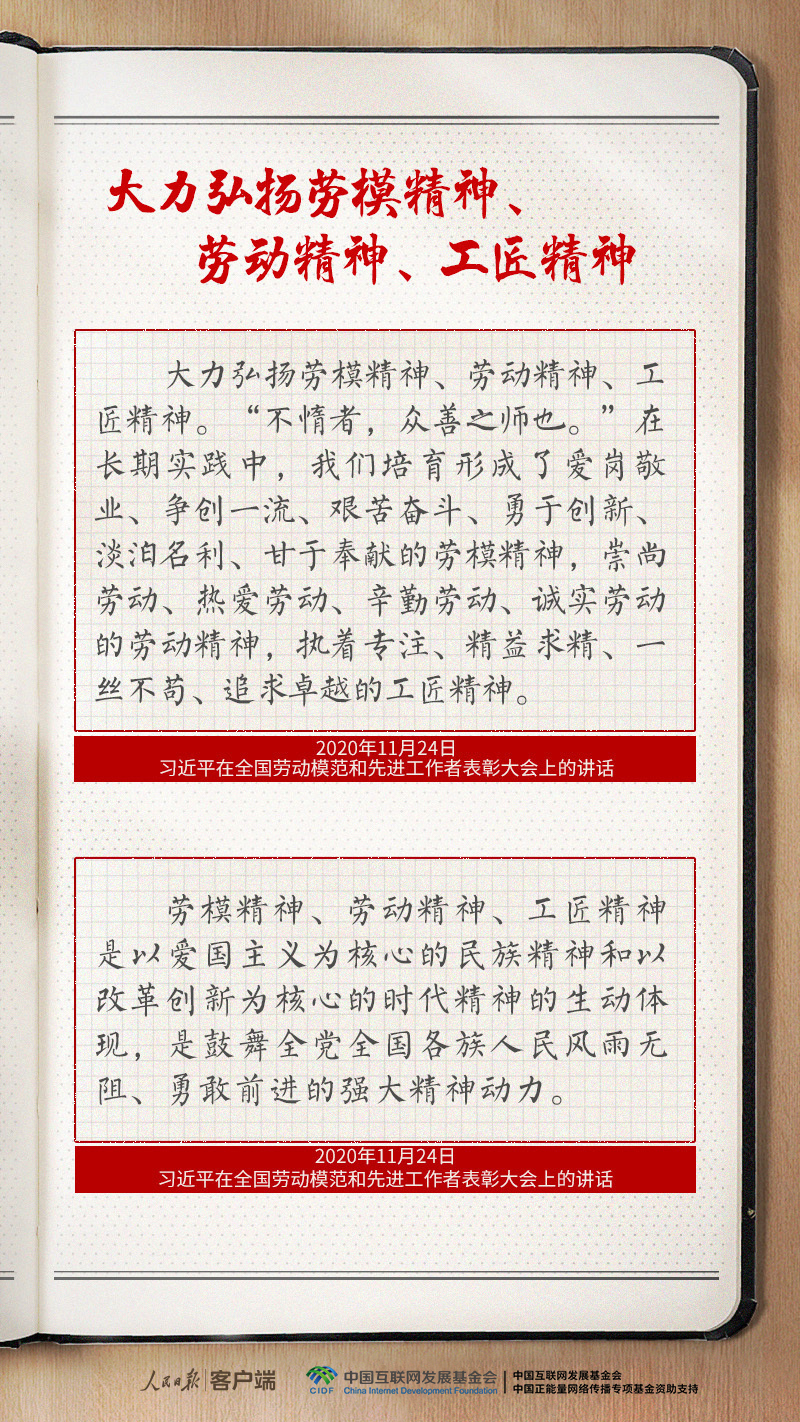 大力弘扬劳模精神、
劳动精神、工匠精神
大力弘扬劳模精神、劳动精神、工
匠精神。“不惰者，众善之师也。”在
长期实践中，我们培育形成了爱岗敬
业、争创一流、艰苦奋斗、勇于创新、
淡泊名利、甘于奉献的劳模精神，崇尚
劳动、热爱劳动、辛勤劳动、诚实劳动
的劳动精神，执着专注、精益求精、一
丝不苟、追求卓越的工匠精神。
2020年11月24日
习近平在全国劳动模范和先进工作者表彰大会上的讲话
劳模精神、劳动精神、工匠精神
是以爱国主义为核心的民族精神和以
改革创新为核心的时代精神的生动体
现，是鼓舞全党全国各族人民风雨无
阻、勇敢前进的强大精神动力。
2020年11月24日
习近平在全国劳动模范和先进工作者表彰大会上的讲话
人民日报 客户端
CIDF
中国互联网发展基金会
China Internet Development Foundation
中国互联网发展基金会
中国正能量网络传播专项基金资助支持